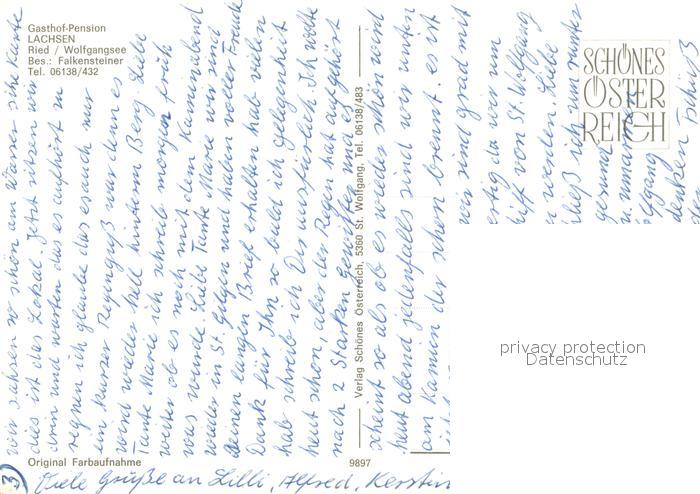 Gasthof-Pension
LACHSEN
Ried / Wolfgangsee
Bes.: Falkensteiner
Tel. 06138/432
SCHÖNES
ÖSTER
REICH
wir sahen so schön am Wasser siehe Karte
dies ist das Lokal. Jetzt sitzen wir
drin und warten das es aufhört zu
regnen ich glaube das es auch nur
ein kurzer Regenguß war denn es
wird wieder hell hinterm Berg. Liebe
Tante Marie ich schreib morgen früh
weiter ob es noch mit dem Kaminabend
was wurde. Liebe Tante Marie wir sind
wieder in St Gilgen und haben voller Freude
Deinen langen Brief erhalten hab vielen
Dank für Ihn so bald ich Gelegenheit
hab schreib ich Dir ausführlich. Ich wollte
heut schon, aber der Regen hat aufgehört
nach 2 Starken Gewittern und es
scheint so als ob es wieder schön wird
heut abend jedenfalls sind wir unten
am Kamin der schon brent. es ist
wir sind grad mit
fertig da wir um
Schiff von St. Wolfgang
werden. Liebe
schließ ich nun
gesund
u. umarmt
denken
Verlag Schönes Österreich, 5360 St. Wolfgang, Tel. 06138/483
privacy protection
Datenschutz
Original Farbaufnahme
9897
3)
Viele Grüße an Lilli, Alfred, Kerstin